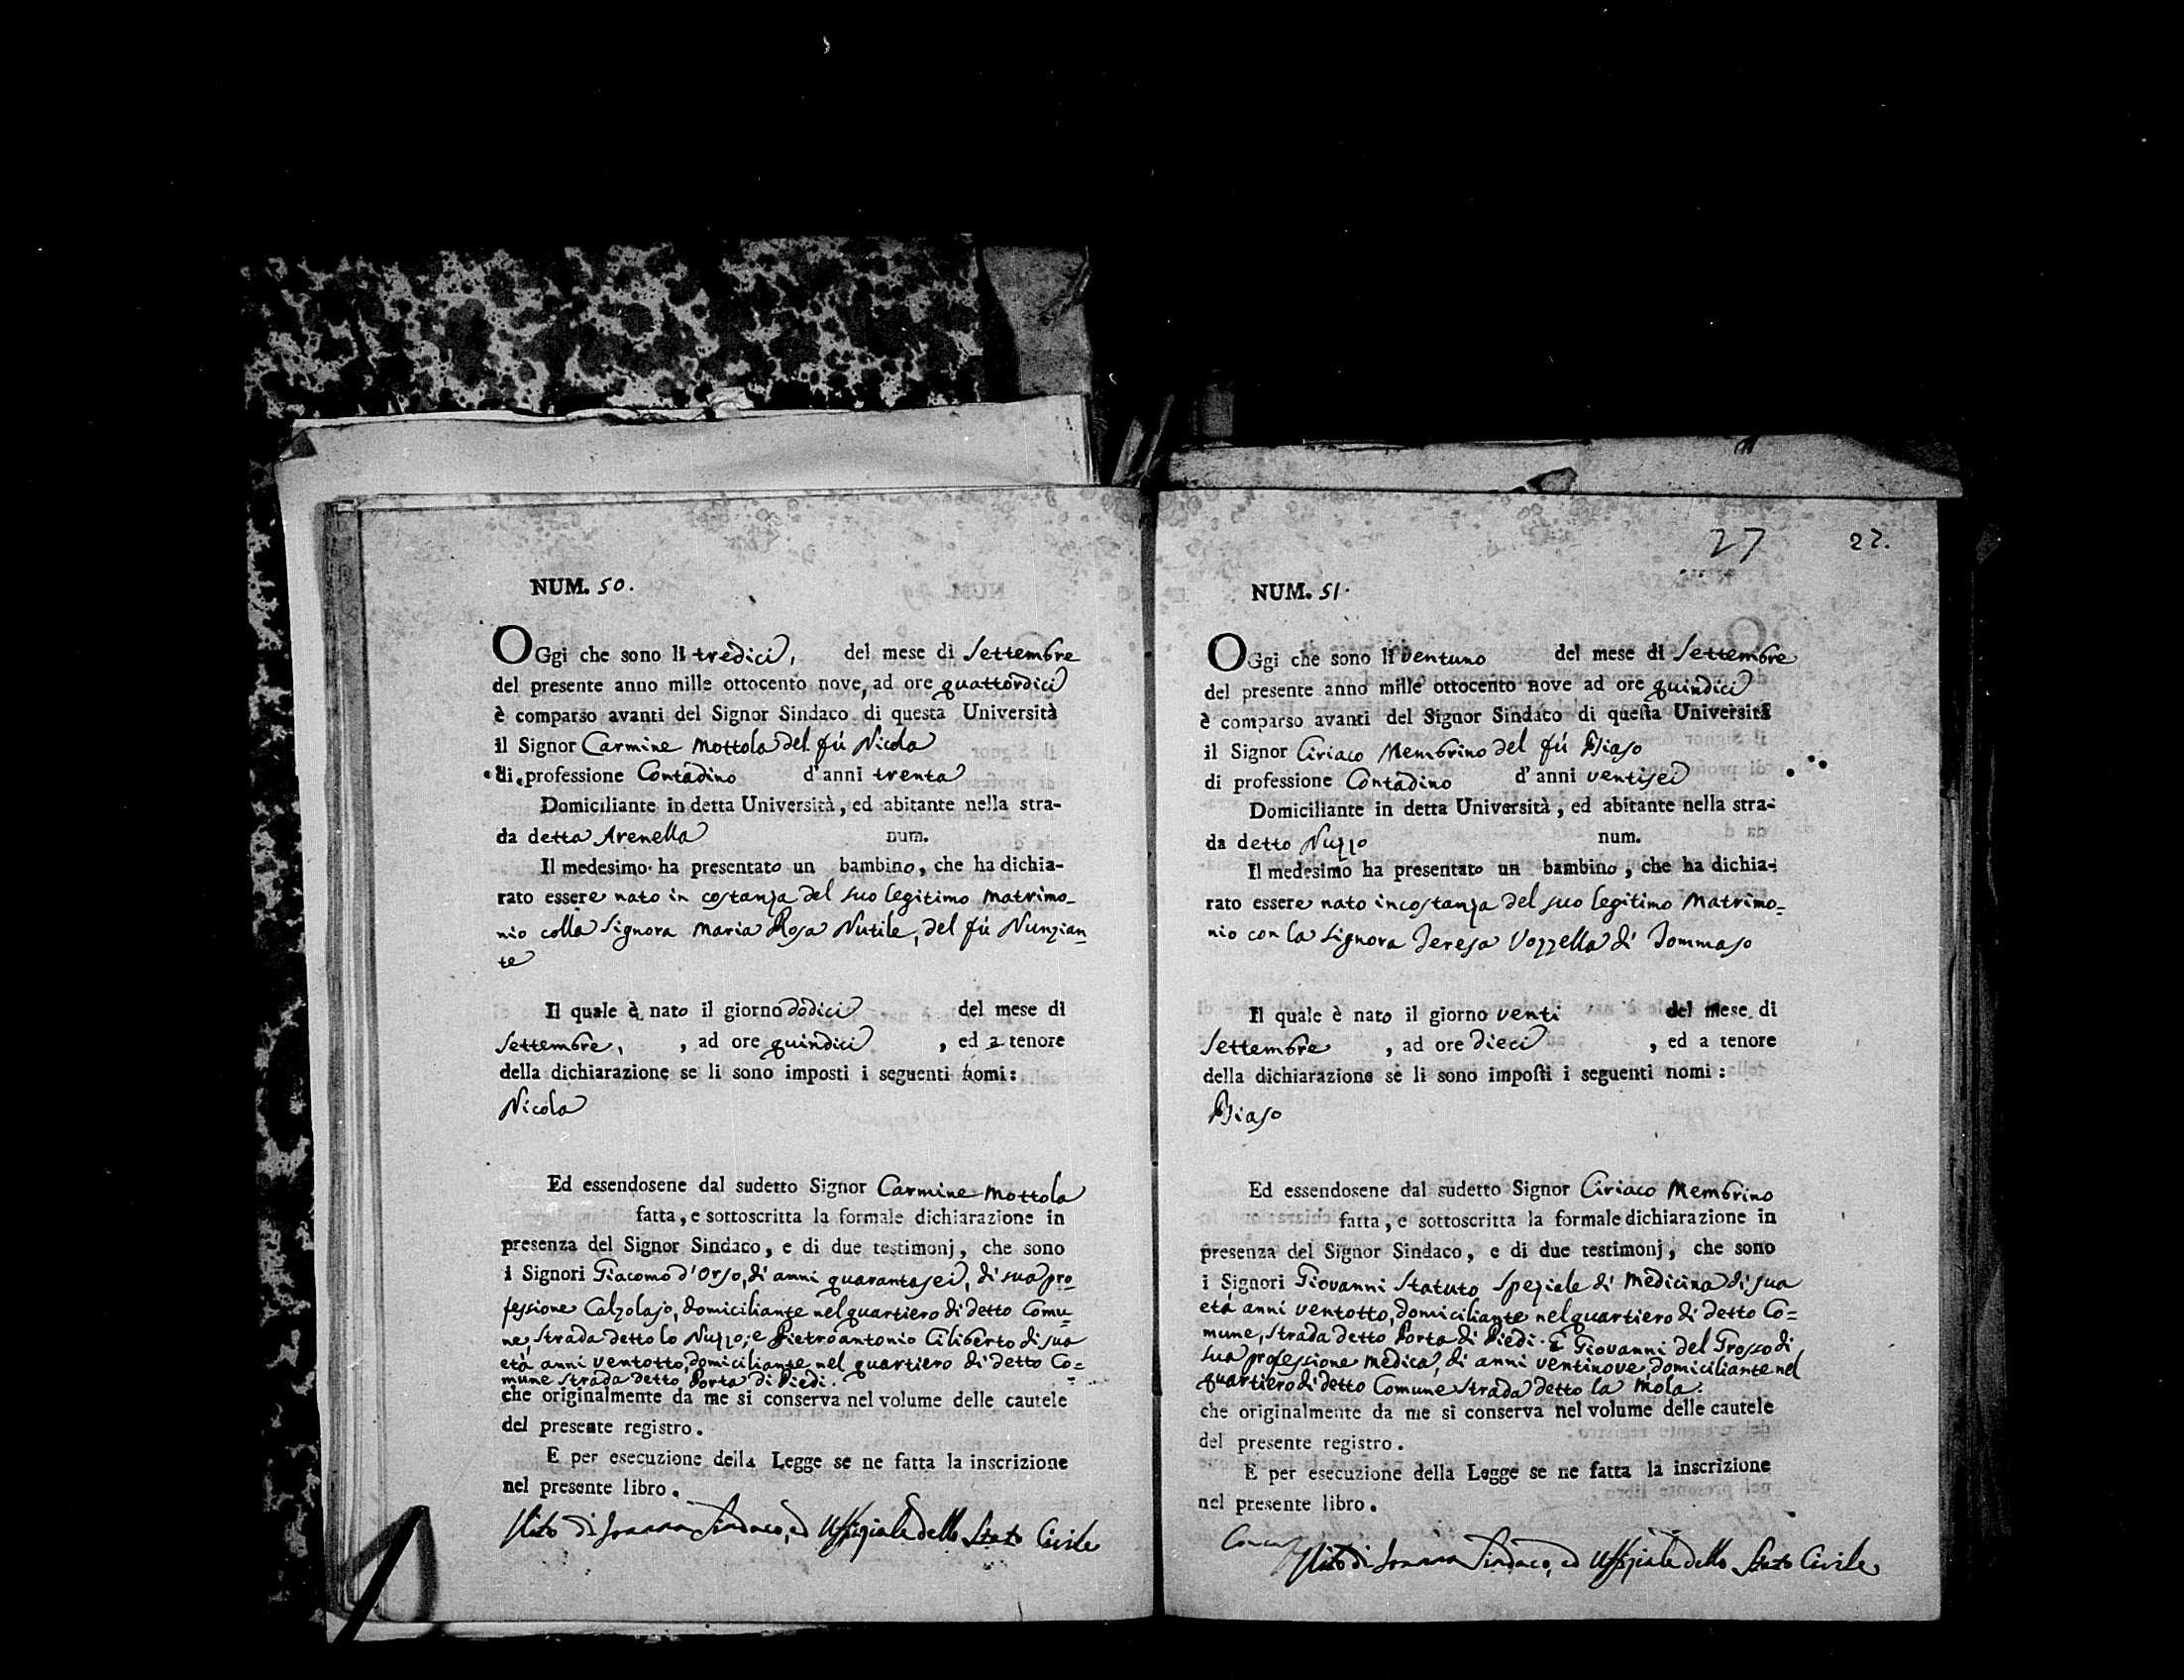 NUM. 50.
OGgi che sono li tredici, del mese di Settembre
del presente anno mille ottocento nove, ad ore quattordici
è comparso avanti del Signor Sindaco di questa Università
il Signor Carmine Mottola del fú Nicola
di professione Contadino d'anni trenta
Domiciliante in detta Università, ed abitante nella stra-
da detta Arenella num.
Il medesimo ha presentato un bambino, che ha dichia-
rato essere nato in costanza del suo legitimo Matrimo-
nio colla Signora Maria Rosa Nutile, del fú Nunzian-
te
Il quale è nato il giorno dodici del mese di
Settembre, , ad ore quindici , ed a tenore
della dichiarazione se li sono imposti i seguenti nomi:
Nicola
Ed essendosene dal sudetto Signor Carmine Mottola
fatta, e sottoscritta la formale dichiarazione in
presenza del Signor Sindaco, e di due testimonj, che sono
i Signori Giacomo d'Orso, di anni quarantasei, di sua pro
fessione Calzolajo, domiciliante nel quartiero di detto Comu=
ne, strada detto lo Nuzzo; e Pietroantonio Ciliberto di sua
età anni ventotto, domiciliante nel quartiero di detto Co=
mune strada detto Porta di Piedi.
che originalmente da me si conserva nel volume delle cautele
del presente registro.
E per esecuzione della Legge se ne fatta la inscrizione
nel presente libro.
Sindaco, ed Uffiziale dello Stato Civile
27 27.
NUM. 51.
OGgi che sono li ventuno del mese di Settembre
del presente anno mille ottocento nove ad ore quindici
è comparso avanti del Signor Sindaco di questa Università
il Signor Ciriaco Membrino del fú Biaso
di professione Contadino d'anni ventisei
Domiciliante in detta Università, ed abitante nella stra-
da detto Nuzzo num.
Il medesimo ha presentato un bambino, che ha dichia-
rato essere nato incostanza del suo legitimo Matrimo=
nio con la Signora Teresa Vozzella di Tommaso
Il quale è nato il giorno venti del mese di
Settembre , ad ore dieci , ed a tenore
della dichiarazione se li sono imposti i seguenti nomi:
Biaso
Ed essendosene dal sudetto Signor Ciriaco Membrino
fatta, e sottoscritta la formale dichiarazione in
presenza del Signor Sindaco, e di due testimonj, che sono
i Signori Giovanni Statuto Speziale di Medicina di sua
età anni ventotto, domiciliante nel quartiero di detto Co=
mune, strada detto Porta di Piedi. E Giovanni del Grosso di
sua professione Medica, di anni ventinove, domiciliante nel
quartiero di detto Comune strada detto la Mola.
che originalmente da me si conserva nel volume delle cautele
del presente registro.
E per esecuzione della Legge se ne fatta la inscrizione
nel presente libro.
Sindaco, ed Uffiziale dello Stato Civile